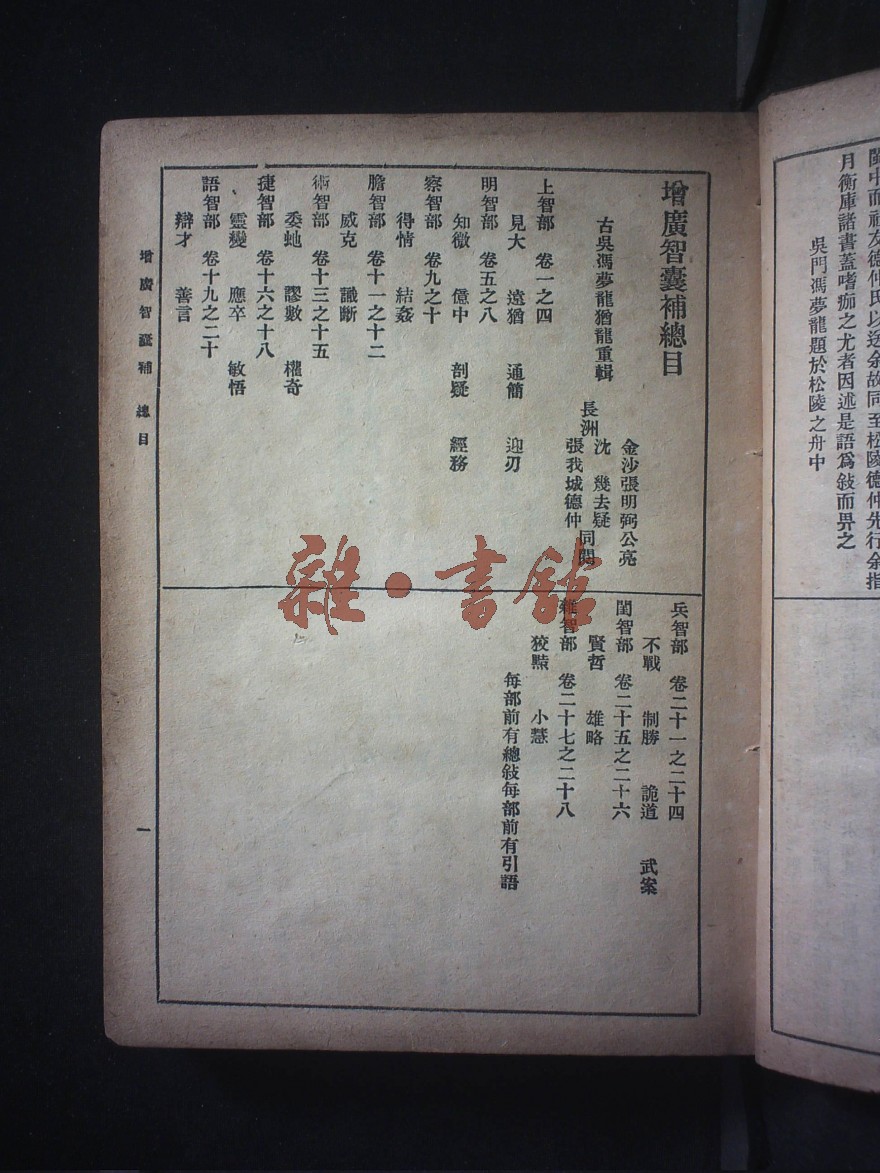 閩中而社友德仲氏以送余故同至松陵德仲先行余指
月衡庫諸書蓋嗜痂之尤者因述是語爲敍而畀之
吳門馮夢龍題於松陵之舟中
增廣智囊補總目
古吳馮夢龍猶龍重輯
金沙張明弼公亮
長洲
沈　幾去疑
張我城德仲
同閱
上智部　卷一之四
見大　遠猶　通簡　迎刃
明智部　卷五之八
知微　億中　剖疑　經務
察智部　卷九之十
得情　結姦
膽智部　卷十一之十二
威克　識斷
術智部　卷十三之十五
委虵　謬數　權奇
捷智部　卷十六之十八
靈變　應卒　敏悟
語智部　卷十九之二十
辯才　善言
兵智部　卷二十一之二十四
不戰　制勝　詭道　武案
閨智部　卷二十五之二十六
賢哲　雄略
雜智部　卷二十七之二十八
狡黠　小慧
每部前有總敍每部前有引語
增廣智囊補　總目
一
雜·書館